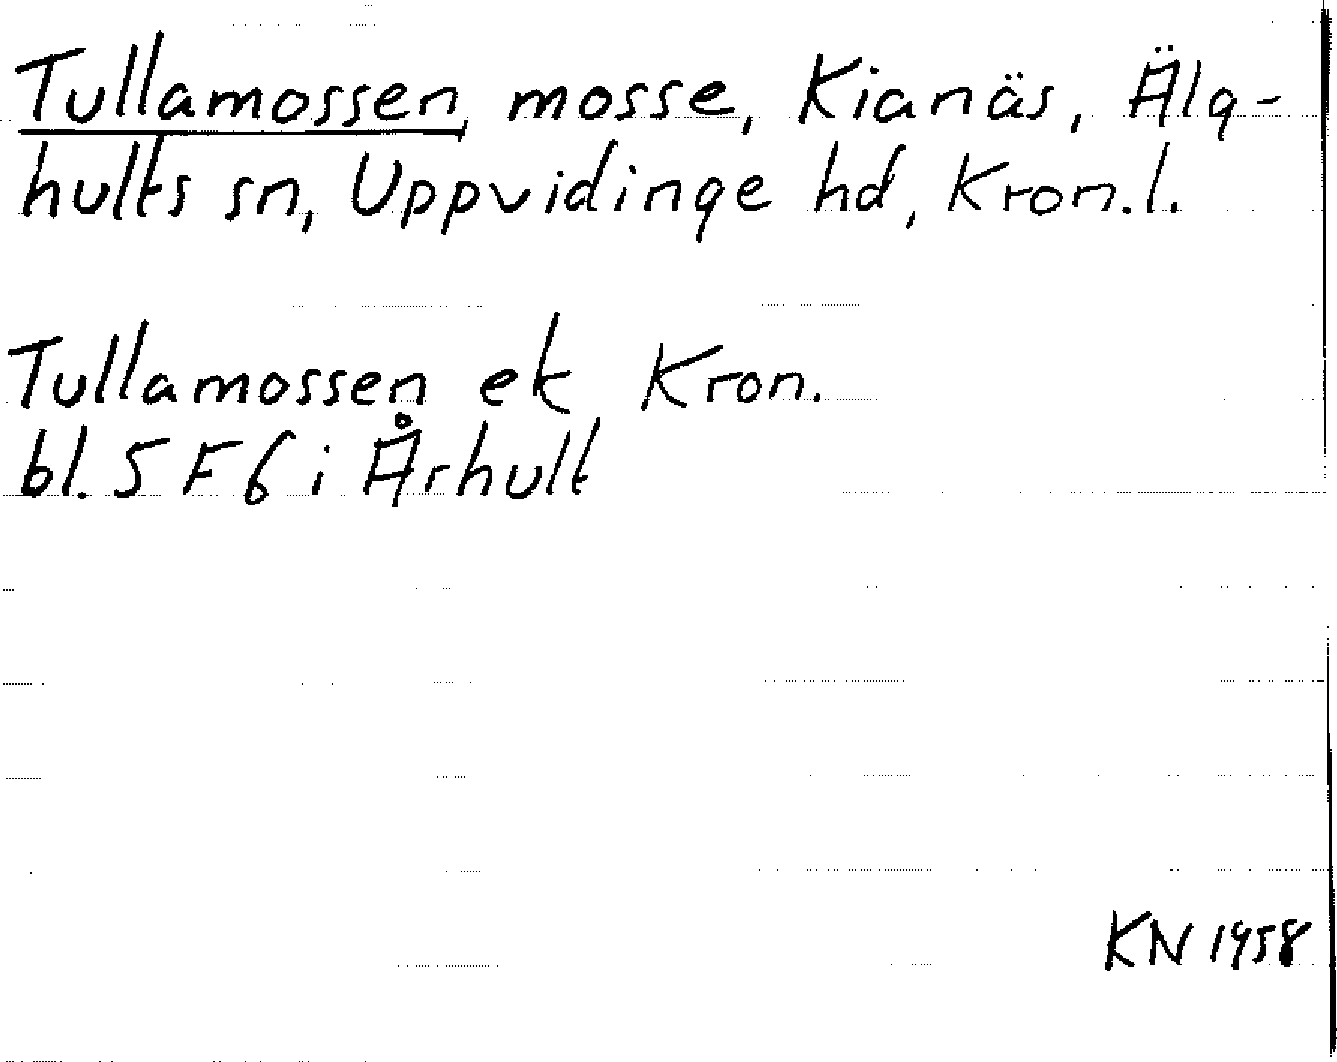 Tullamossen, mosse, Kianäs, Älg-
hults sn, Uppvidinge hd, Kron.l.
Tullamossen ek Kron.
bl. 5 F 6 i Århult
KN 1958